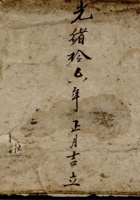 光緒拾六年正月吉立